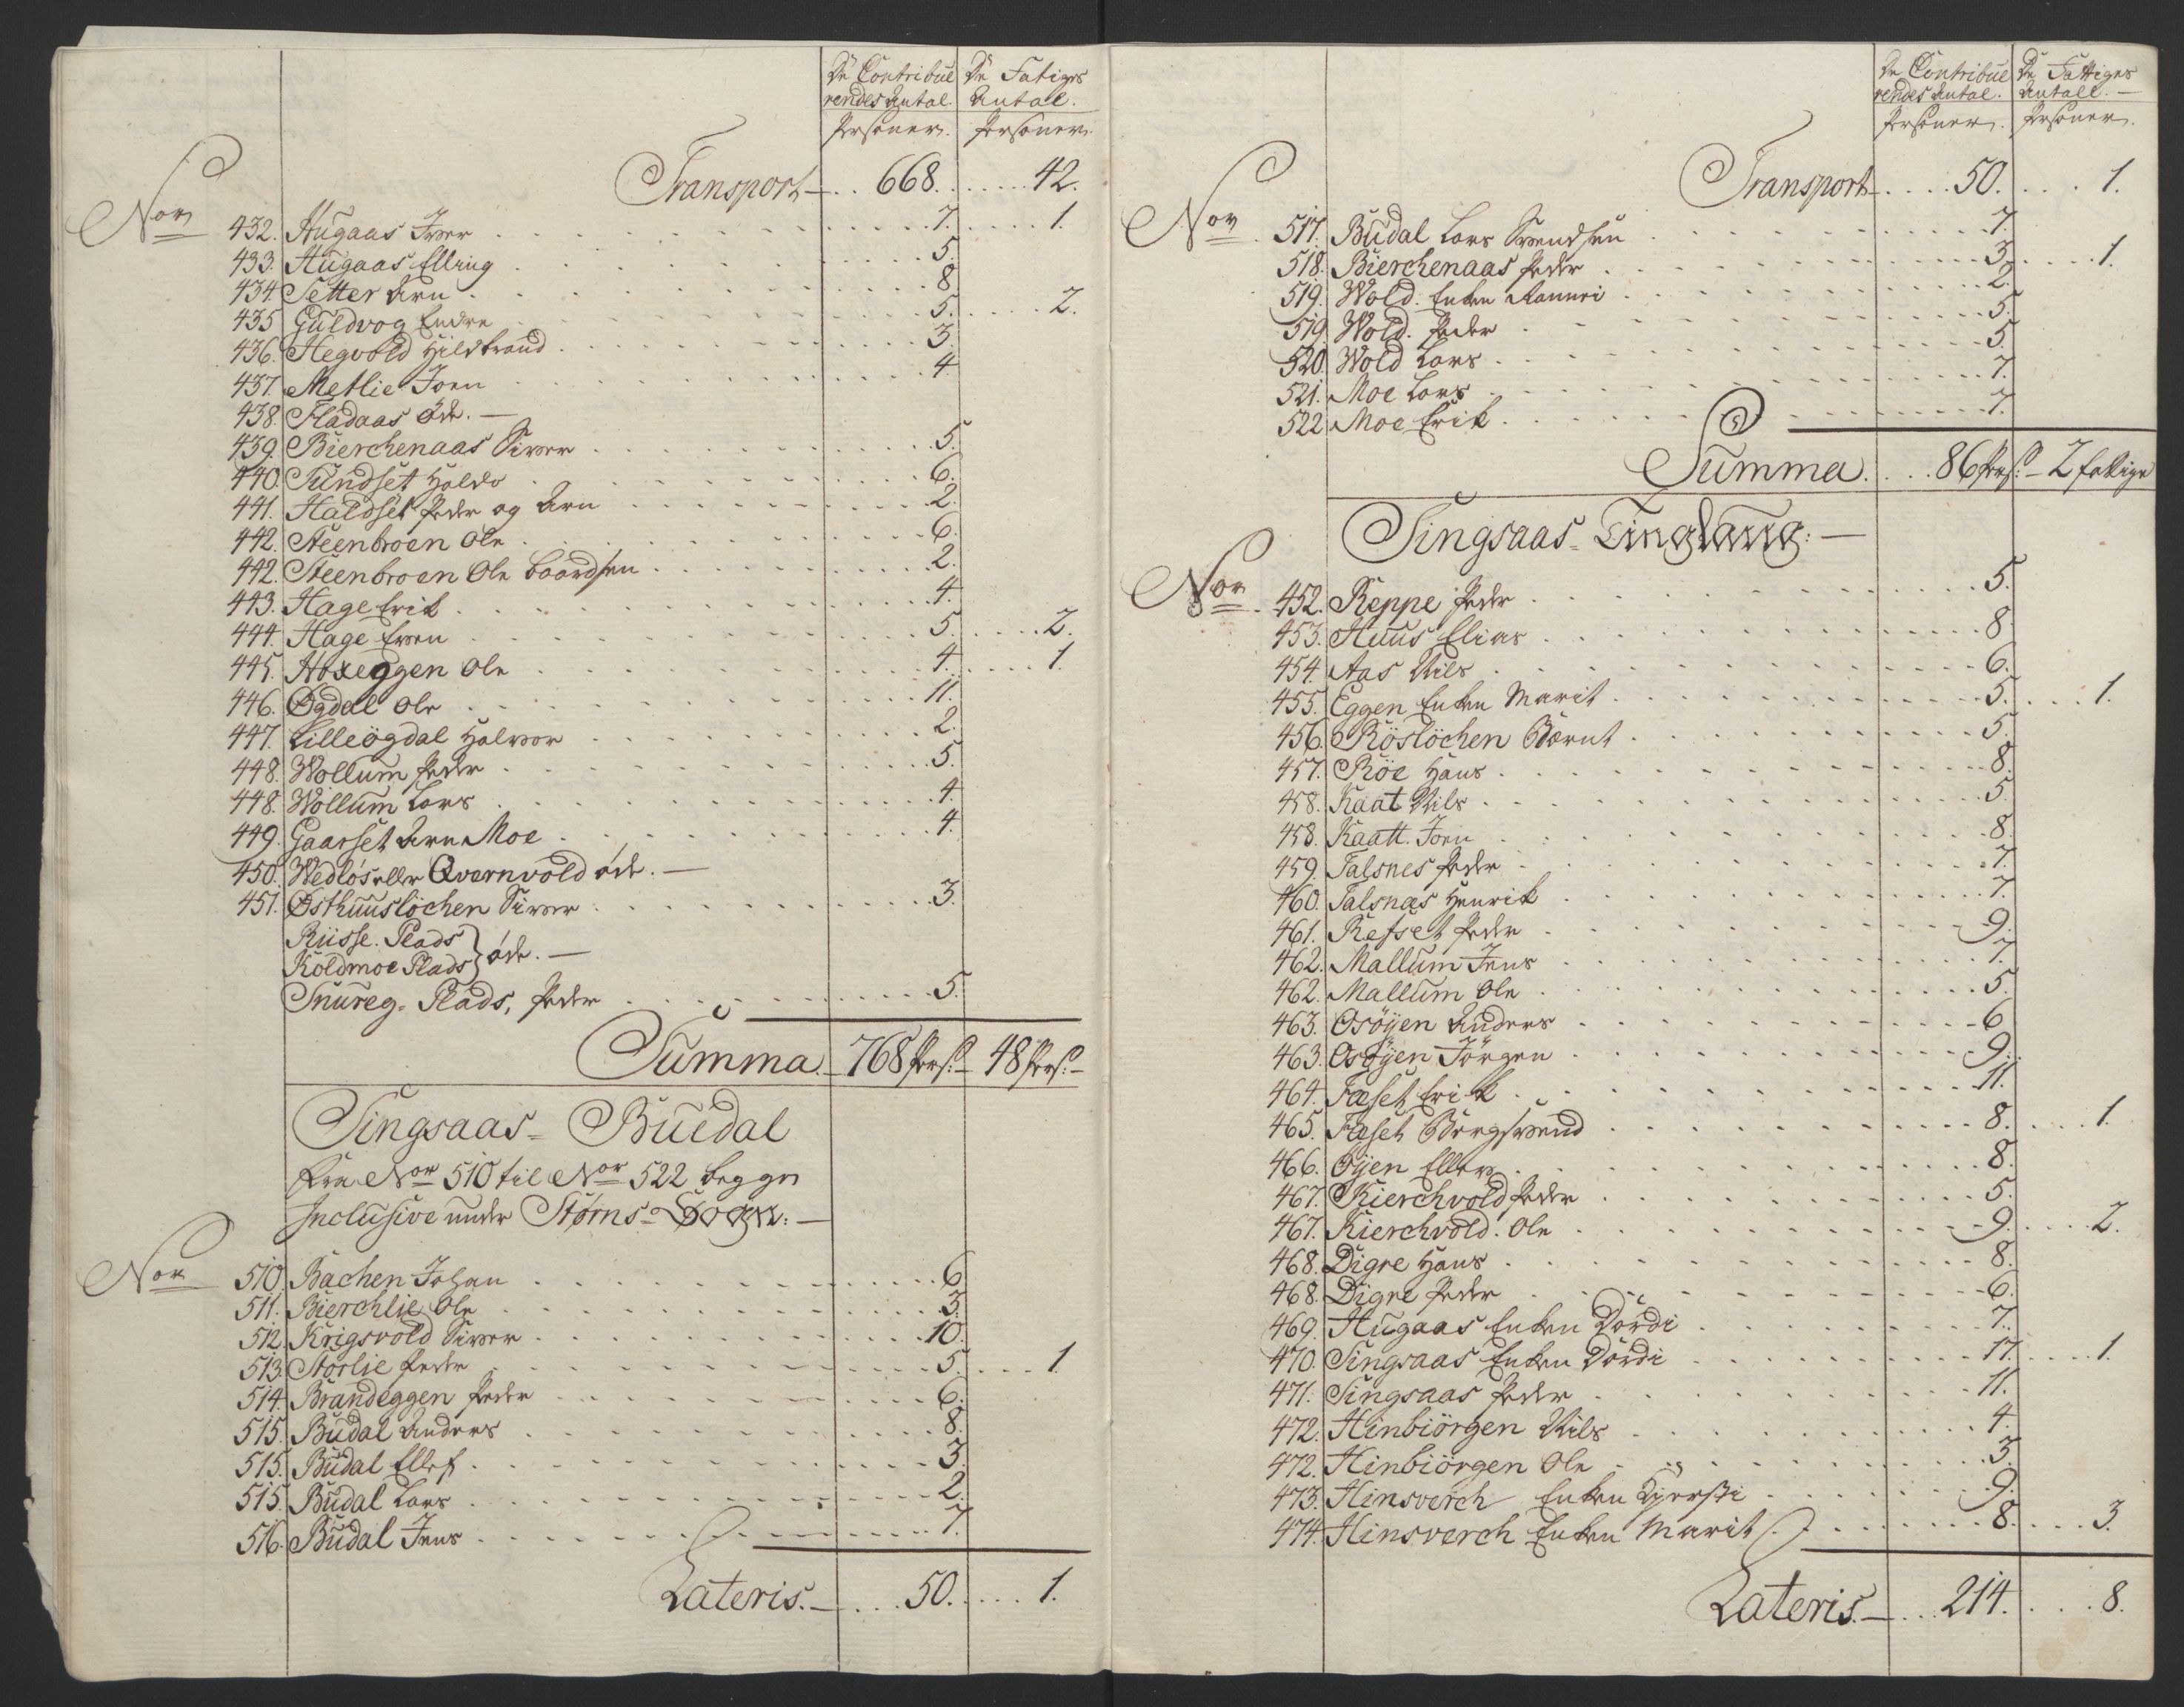 De Contribue De Fatiges
rendes Antal. Antal.
Personer. Personer.
Transport — . . 668. . . . . . 42.
Nor
432. Hugaas Iver . . . 7. . . . 1.
433. Hugaas Elling . . . 5.
434. Setter Arn . . . 8
435 Guldvog Endre . . . 5. . . . 2.
436. Hegvold Hildbrand . . . 3.
437. Metlie Joen . . . 4
438. Fladaas Øde. —
439. Bierchenaas Siver . . . 5.
440. Sundset Haldo . . . 6.
441. Haldset Peder og Arn . . . 2.
442. Steenbroen Ole . . . 6.
442. Steenbroen Ole Baardsen . . . 2.
443. Hage Erik . . . 4.
444. Hage Even . . . 5. . . . 2.
445. Hoxeggen Ole . . . 4. . . . 1.
446. Øgdal Ole . . . 11.
447. Lilleögdal Halvor . . . 2.
448. Wollum Peder . . . 5.
448. Wollum Lars . . . 4.
449. Gaarset Arn Moe . . . 4.
450. Wedløs eller Qvernvold øde. —
451. Østhuuslöchen Siver . . . 3.
Rüsse. Plads
Koldmoe Plads } øde. —
Snureg= Plads, Peder . . . 5.
Summa. — 768 Pers: — 48 Pers: —
Singsaas= Buedal
Fra Nor 510 til Nor 522 begge
Inclusive under Størns= Sogn. —
Nor
510. Bachen Johan . . . 6
511. Bierchlie Ole . . . 3.
512. Krigsvold Siver . . . 10.
513. Storlie Peder . . . 5. . . . 1.
514. Brandeggen Peder . . . 6.
515. Budal Anders . . . 8.
515. Budal Ellef . . . 3.
515. Budal Lars . . . 2.
516. Budal Jens . . . 7.
Lateris. — . . . 50. . . . . 1.
De Contribue De Fattiges
rendes Antal. Antall. —
Personer. Personer.
Transport . . . . 50. . . . 1.
Nor
517. Budal Lars Svendsen . . . 7.
518. Bierchenaas Peder . . . 3. . . . 1.
519. Wold. Enken Rannei . . . 2.
519. Wold. Peder . . . 5.
520. Wold Lars . . . 5.
521. Moe Lars . . . 7.
522 Moe Erik . . . 7.
Summa. . . . 86 Pers: — 2 fattige
Singsaas= Tinglaug: —
Nor
452. Reppe Peder . . . 5.
453. Huus Elias . . . 8.
454. Aas Nils . . . 6.
455. Eggen Enken Marit . . . 5. . . . 1.
456. Röslöchen Bærnt . . . 5.
457. Röe Hans . . . 8.
458. Kaat Nils . . . 5.
458. Kaatt. Joen . . . 8.
459. Talsnes Peder . . . 7.
460. Talsnæs Henrik . . . 7.
461. Refset Peder . . . 9.
462. Mallum Jens . . . 7.
462. Mallum Ole . . . 5.
463. Osöyen Anders . . . 6
463. Osöyen Jörgen . . . 9.
464. Fæset Erik . . . 11.
465. Fæset Bergsvend . . . 8. . . . 1.
466. Öyen Ellev . . . 8.
467. Kierchvold Peder . . . 5.
467. Kierchvold. Ole . . . 9. . . . 2.
468. Digre Hans . . . 8.
468. Digre Peder . . . 6.
469. Hugaas Enken Dordi . . . 7.
470. Singsaas Enken Dordi . . . 17. . . . 1.
471. Singsaas Peder . . . 11.
472. Hinbiörgen Nils . . . 4.
472. Hinbiörgen Ole . . . 3.
473. Hinsverch Enken Kjersti . . . 9.
474. Hinsverch Enken Marit . . . 8. . . . 3.
Lateris. — . . . 214. . . . 8.